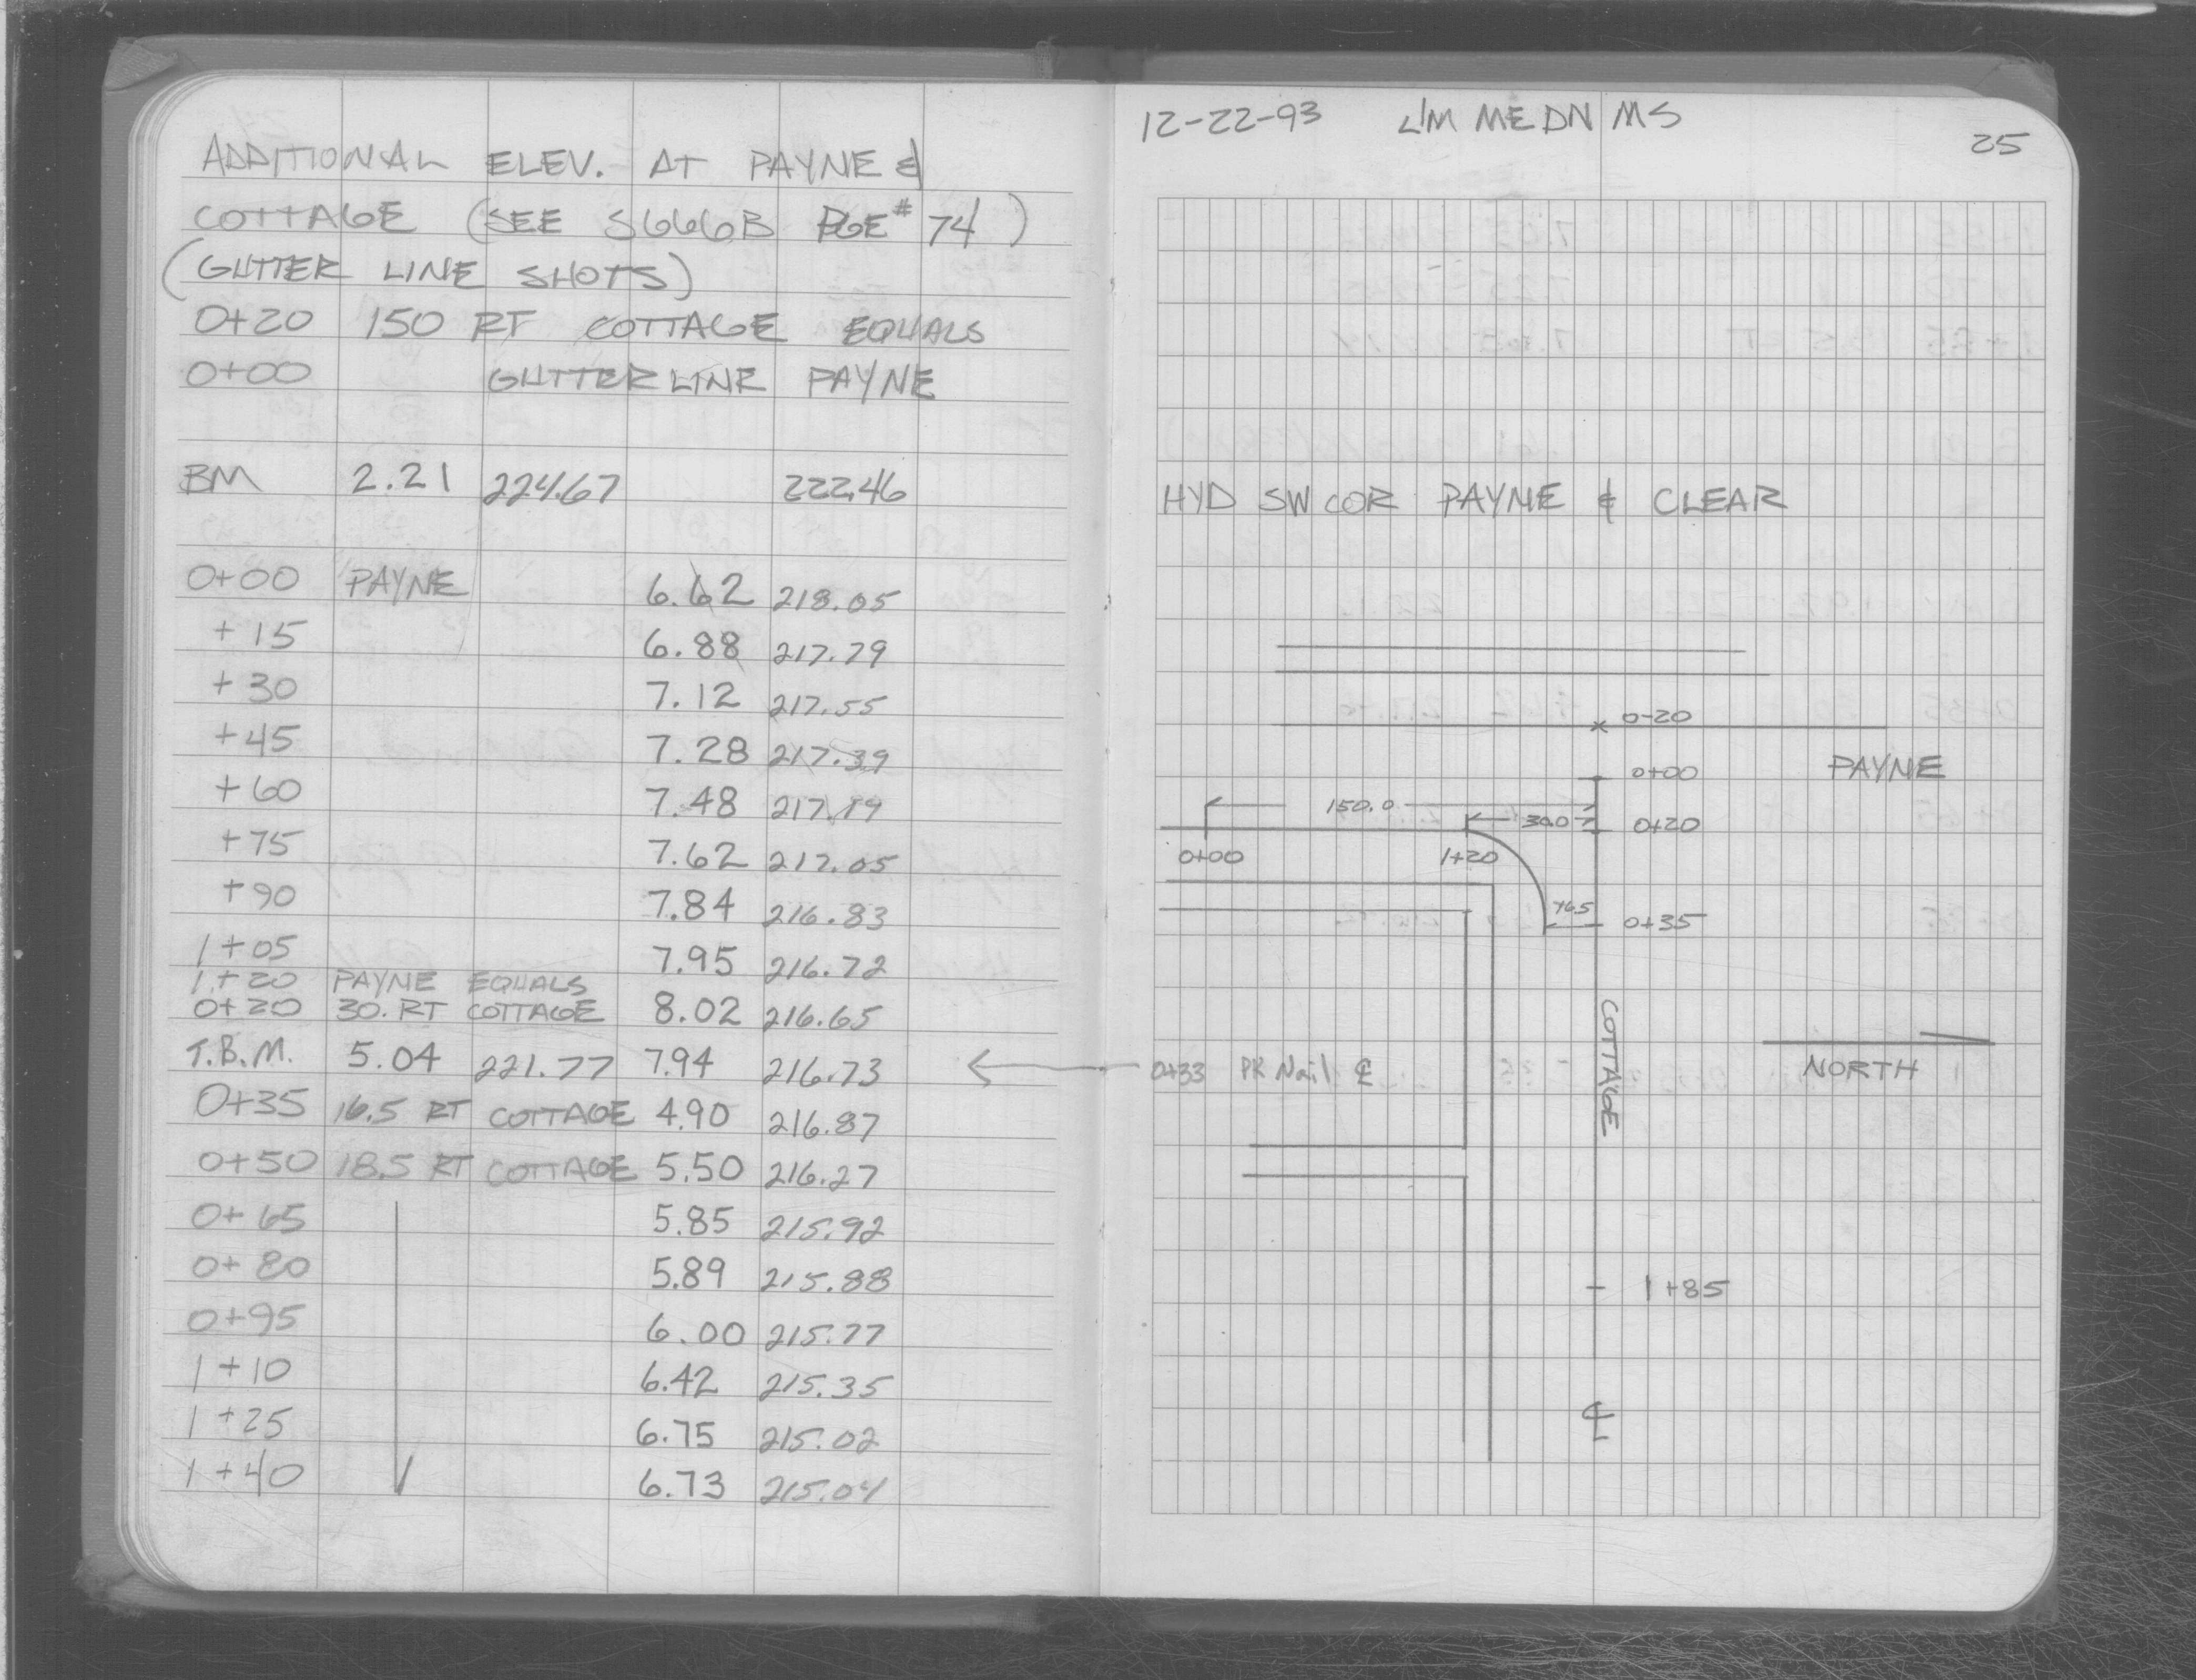 ADDITIONAL ELEV. AT PAYNE &
COTTAGE (SEE S666B PGE # 74)
(GUTTER LINE SHOTS)
0+20 150 RT COTTAGE EQUALS
0+00 GUTTER LINE PAYNE
BM 2.21 224.67 222.46
0+00 PAYNE 6.62 218.05
+15 6.88 217.79
+30 7.12 217.55
+45 7.28 217.39
+60 7.48 217.19
+75 7.62 217.05
+90 7.84 216.83
1+05 7.95 216.72
1+20 PAYNE EQUALS
0+20 30. RT COTTAGE 8.02 216.65
T.B.M. 5.04 221.77 7.94 216.73
0+35 16.5 RT COTTAGE 4.90 216.87
0+50 18.5 RT COTTAGE 5.50 216.27
0+65 5.85 215.92
0+80 5.89 215.88
0+95 6.00 215.77
1+10 6.42 215.35
1+25 6.75 215.02
1+40 6.73 215.04
12-22-93 LM ME DN MS
25
HYD SW COR PAYNE & CLEAR
0-20
0+00
PAYNE
150.0
30.0
0+20
0+00
1+20
16.5
0+35
COTTAGE
0+33 PK Nail ℄
NORTH
1+85
℄